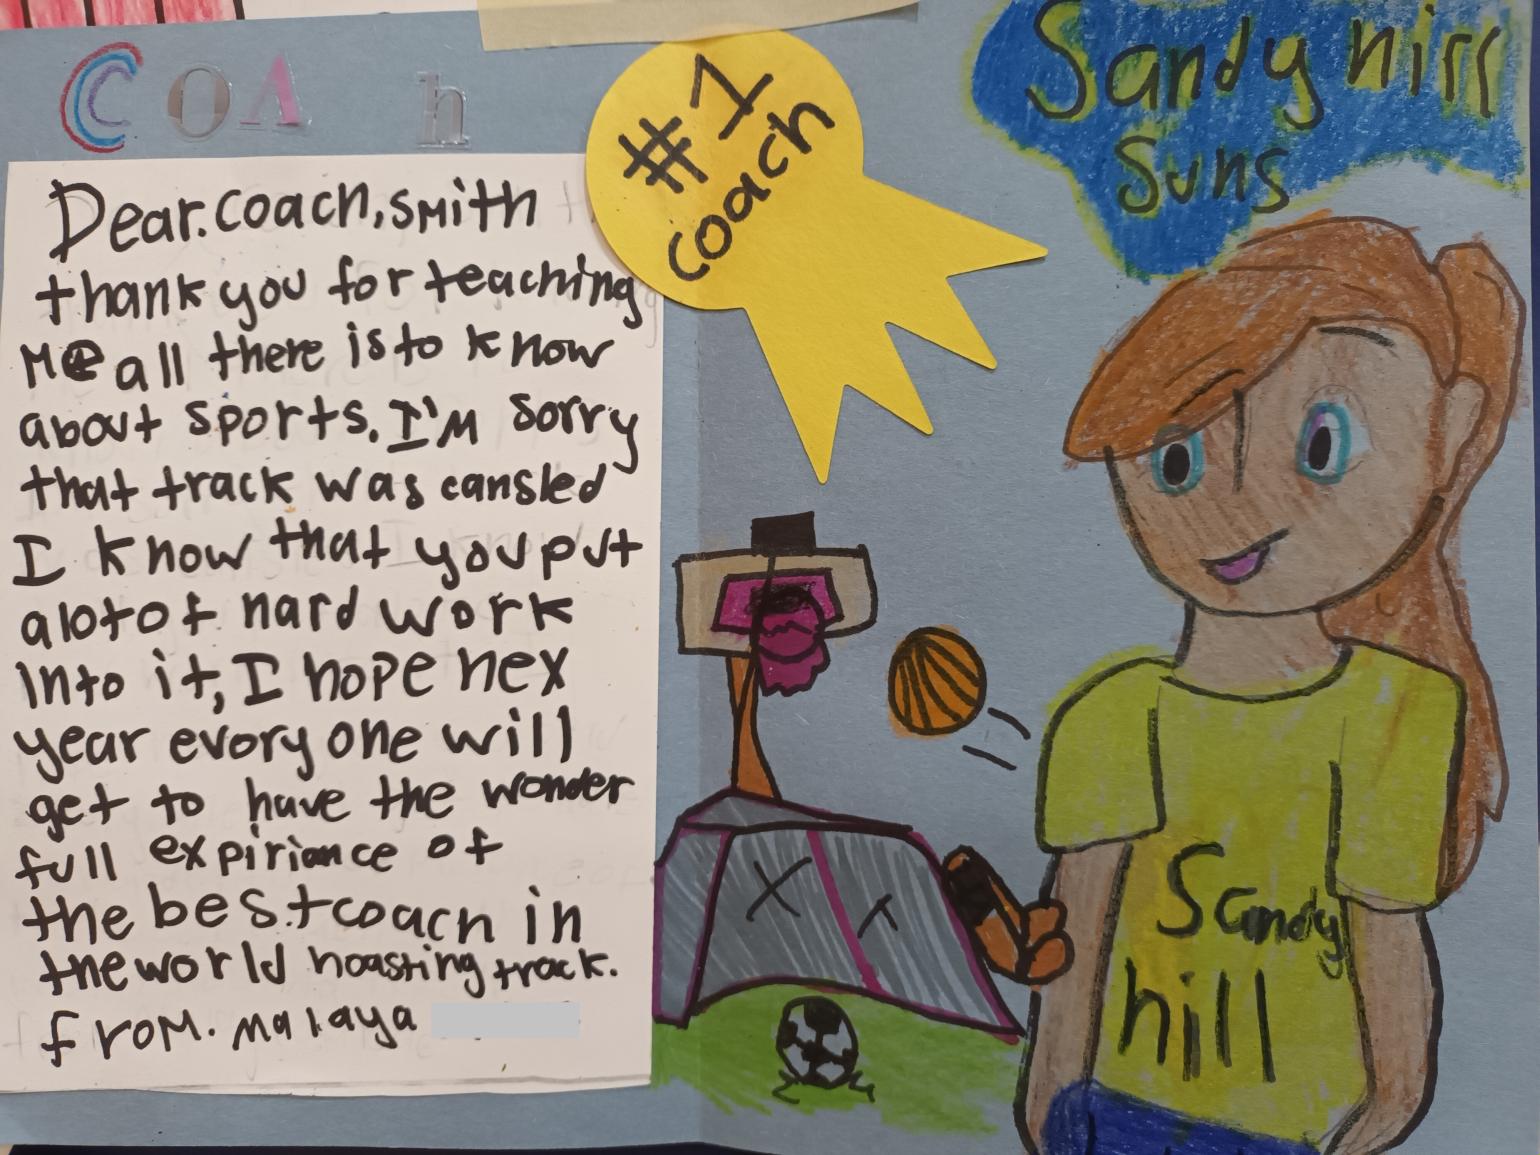 COA h
Dear. coach, smith
thank you for teaching
me all there is to know
about sports. I'm sorry
that track was cansled
I know that you put
alot of hard work
into it, I hope nex
year every one will
get to have the wonder
full expiriance of
the best coach in
the world hoasting track.
from. malaya
#1
coach
Sandy hill
suns
Sandy
hill